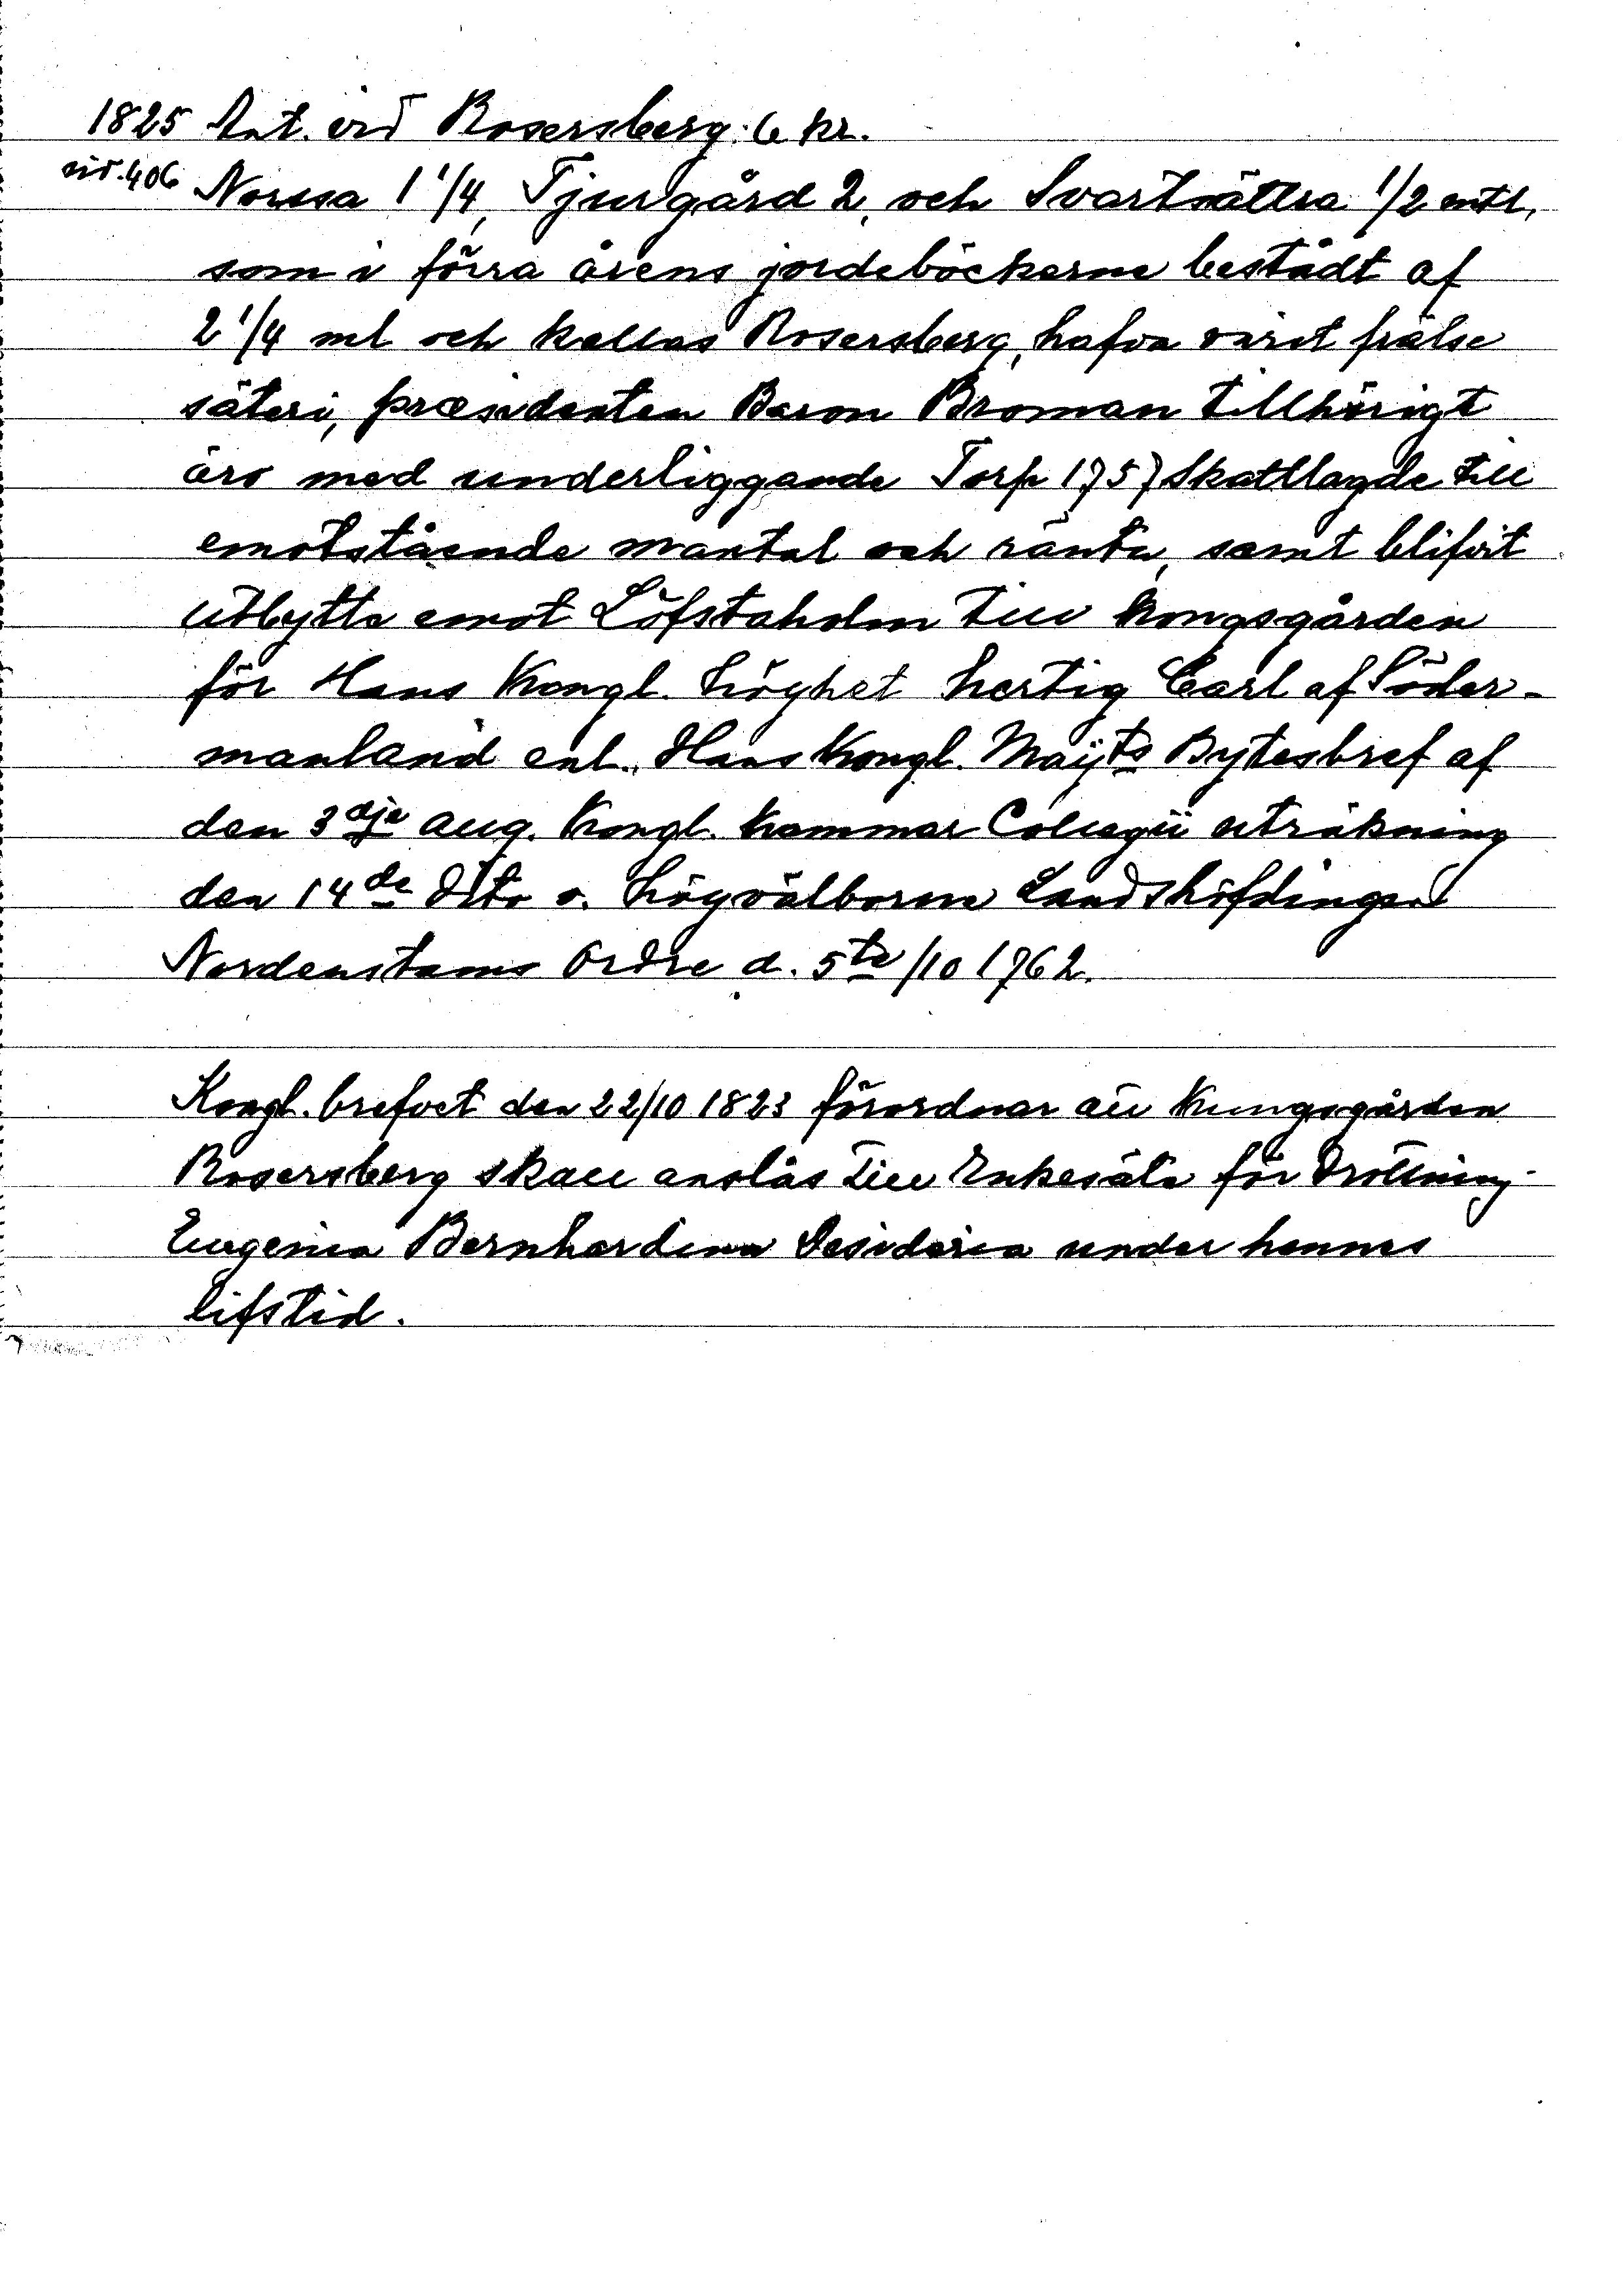 1825 Ant. vid Rosersberg: 6 kr.
sid. 406 Norrsa 1 1/4, Tjurgård 2, och Svartsättra 1/2 mtl,
som i förra årens jordeböckerne bestådt af
2 1/4 ml och kallas Rosersberg, hafva varit frälse
säteri, præsidenten Baron Broman tillhörigt
äro med underliggande Torp 1757 skattlagde till
emotstående mantal och ränta, samt blifvit
utbytte emot Löfstaholm till kongsgården
för Hans Kongl. höghet hertig Carl af Söder-
manland enl. Hans Kongl. Maÿts Bytesbref af
den 3dje aug. Kongl. kammar Collegii uträkning
den 14de dito o. högvälborne Landshöfdingen
Nordenstams Ordre d. 5te/10 1762.
Kongl. brefvet den 22/10 1823 förordnar att kungsgården
Rosersberg skall anslås till Enkesäte för Drottning
Eugenia Bernhardina Desideria under hennes
lifstid.